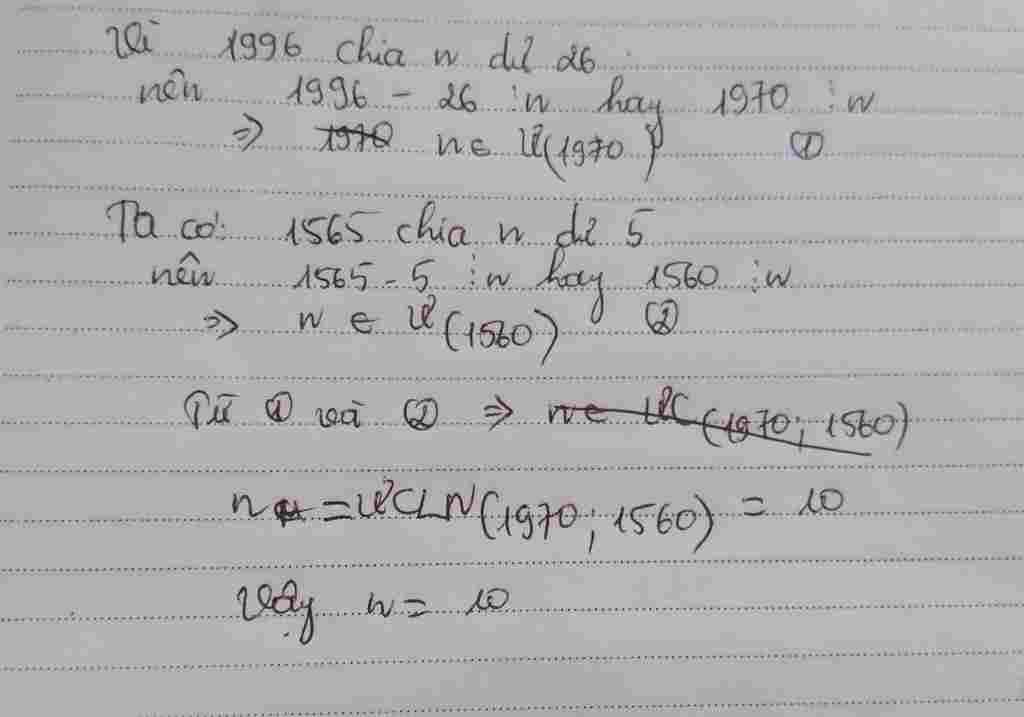 Vì 1996 chia n dư 26
nên 1996 - 26 ⋮ n hay 1970 ⋮ n
⇒ 1970 n ∈ Ư(1970) ①
Ta có: 1565 chia n dư 5
nên 1565 - 5 ⋮ n hay 1560 ⋮ n
⇒ n ∈ Ư(1560) ②
Từ ① và ② ⇒ n ∈ ƯC(1970; 1560)
n = ƯCLN(1970; 1560) = 10
Vậy n = 10